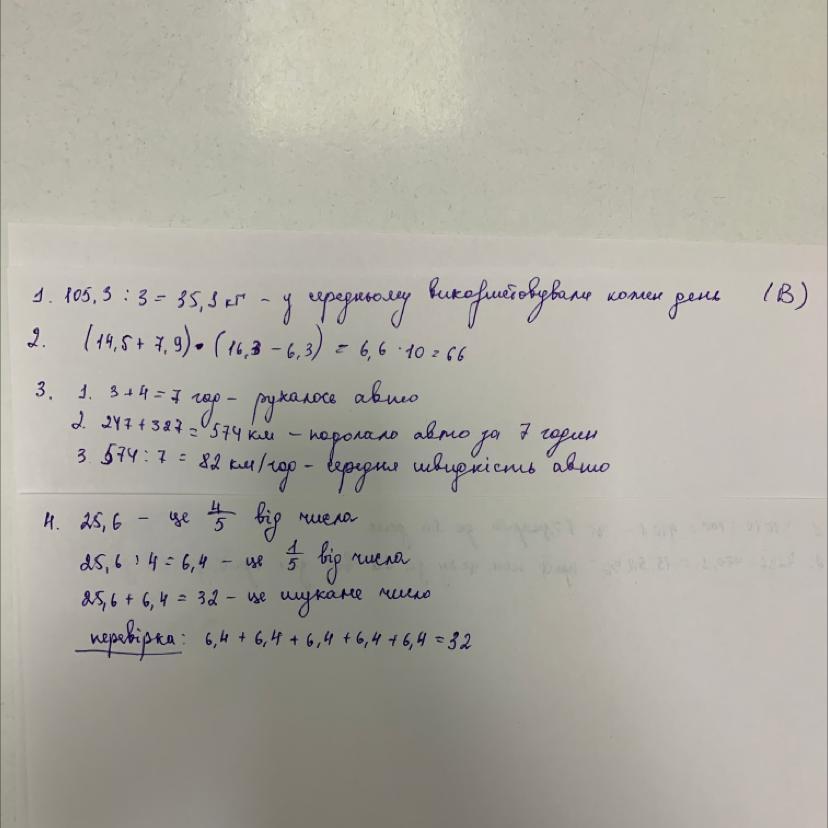 1. 105,3 : 3 = 35,1 кг – у середньому використовували кожен день (В)
2. (14,5 + 7,9) • (16,3 – 6,3) = 6,6 · 10 = 66
3. 1. 3 + 4 = 7 год – рухалось авто
2. 247 + 327 = 574 км – подолало авто за 7 годин
3. 574 : 7 = 82 км/год – середня швидкість авто
4. 25,6 – це 4/5 від числа
25,6 : 4 = 6,4 – це 1/5 від числа
25,6 + 6,4 = 32 – це шукане число
перевірка: 6,4 + 6,4 + 6,4 + 6,4 + 6,4 = 32